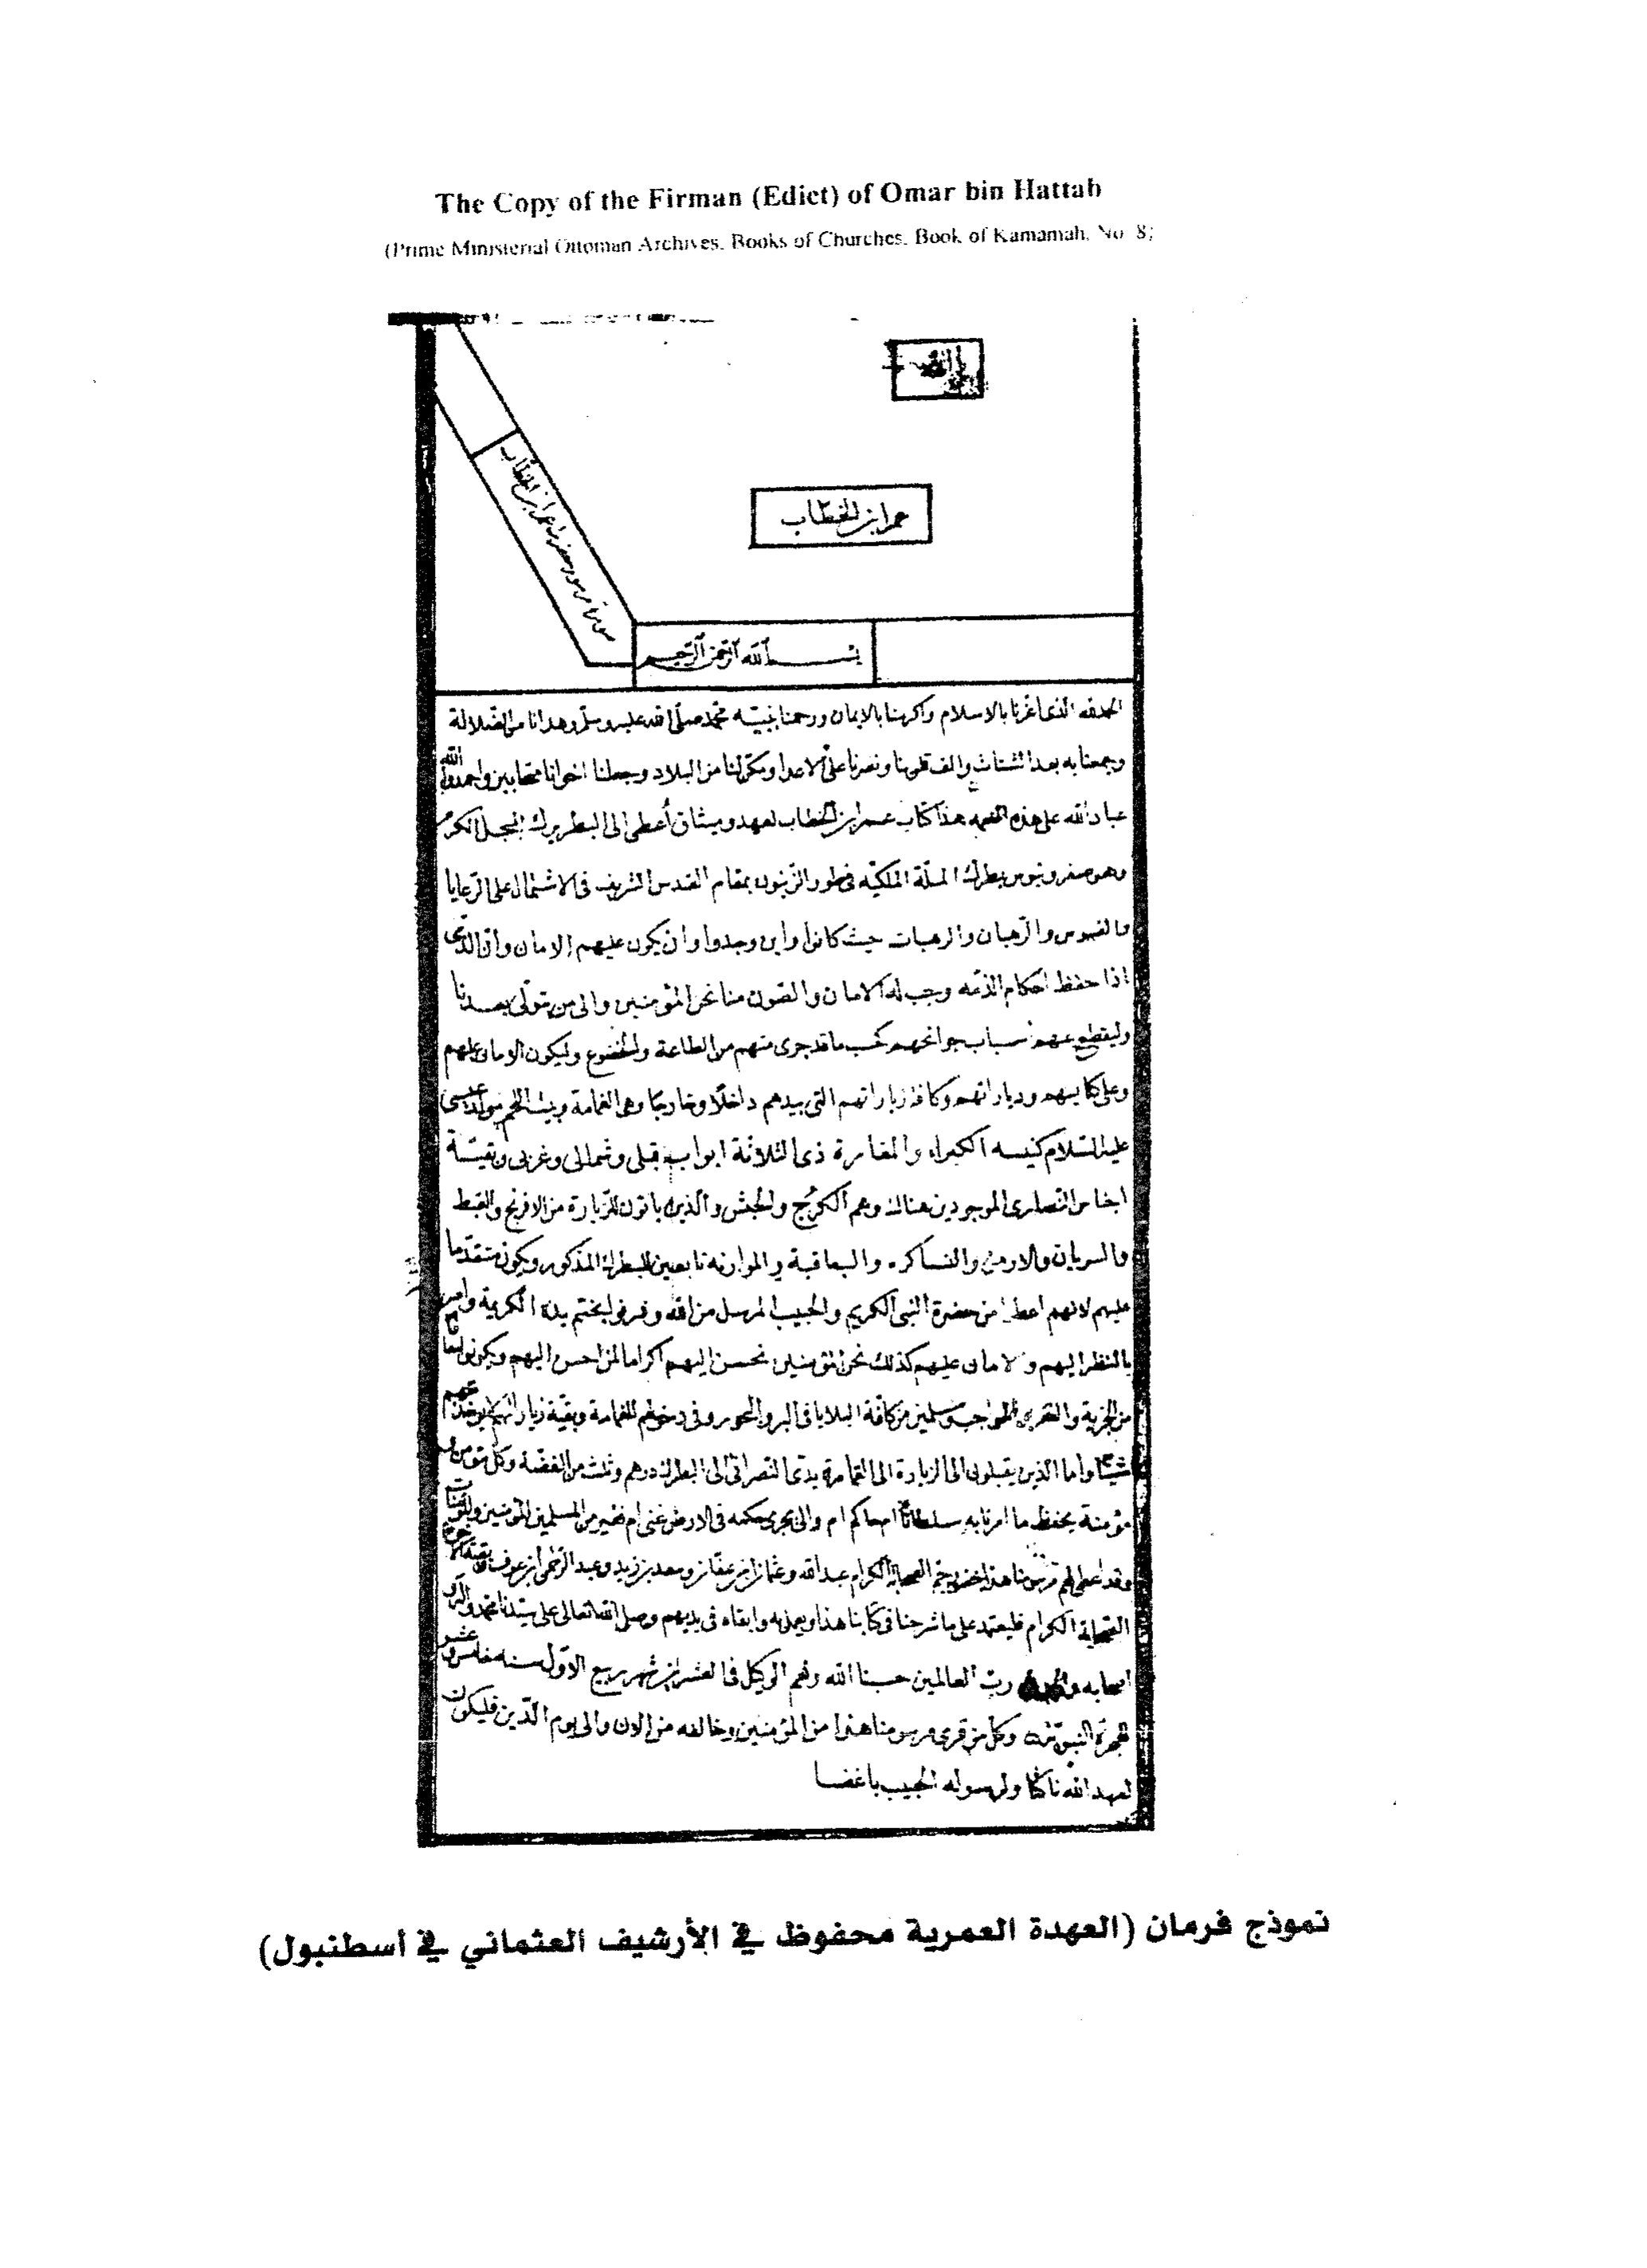 The Copy of the Firman (Edict) of Omar bin Hattab
(Prime Ministerial Ottoman Archives. Books of Churches. Book of Kamamah, No 8)
عمر ابن الخطاب
صورة حضرة عمر ابن الخطاب
بسم الله الرحمن الرحيم
الحمد لله الذى اعزنا بالاسلام واكرمنا بالايمان ورحمنا بنبيه محمد صلى الله عليه وسلم وهدانا من الضلالة
وجمعنا به بعد الشتات والف قلوبنا ونصرنا على الاعدا ومكن لنا من البلاد وجعلنا اخوانا متحابين واحمدوا الله
عباد الله على هذه النعمه هذا كتاب عمر ابن الخطاب لعهد وميثاق أعطى الى البطريرك المبجل المكرم
وهو صفرونيوس بطرك الملة الملكيه فى طور الزيتون بمقام القدس الشريف فى الاشتمال على الرعايا
والقسوس والرهبان والرهبات حيث كانوا واين وجدوا وان يكون عليهم الامان وان الذمى
اذا حفظ احكام الذمه وجب له الامان والصون منا نحن المؤمنين والى من يتولى بعدنا
وليقطع عنهم اسباب جوانحهم كحسب ما قد جرى منهم من الطاعة والخضوع وليكون الامان عليهم
وعلى كنايسهم وديارانهم وكافة زياراتهم التى بيدهم داخلا وخارجا وهى القمامة وبيت لحم مولد عيسى
عليه السلام كنيسه الكبراء والمغارة ذى الثلاثة ابواب قبلى وشمالى وغربى وبقية
اجناس النصارى الموجودين هنالك وهم الكرج والحبش والذين ياتون للزيارة من الافرنج والقبط
والسريان والارمن والنساكره واليعاقبة والموارنه تابعين للبطرك المذكور ويكون متقدما
عليهم لانهم اعطوا من حضرة النبى الكريم والحبيب المرسل من الله وشرفوا بختم يده الكريمة وامر
بالنظر اليهم والامان عليهم كذلك نحن المؤمنين نحسن اليهم اكراما لمن احسن اليهم ويكونوا معافا
من الجزية والغفر والمواجب ومسلمين من كافة البلايا فى البر والبحور وفى دخولهم للقمامة وبقية زياراتهم لا يوخذ منهم
شيئا واما الذين يقبلون الى الزيارة الى القمامة يودى النصرانى الى البطرك درهم وثلث من الفضة وكل مؤمن
مؤمنة يحفظ ما امرنا به سلطانا ام حاكم ام والى يجرى حكمه فى الارض غنى ام فقير من المسلمين المؤمنين والمؤمنات
وقد اعطى لهم مرسومنا هذا بحضور جم الصحابة الكرام عبد الله وعثمان ابن عفان وسعد بن زيد وعبد الرحمن ابن عوف وبقية الاخوة
الصحابة الكرام فليعتمد على ما شرحنا فى كتابنا هذا ويعمل به وابقاه فى يديهم وصلى الله تعالى على سيدنا محمد واله و
اصحابه رب العالمين حسبنا الله ونعم الوكيل فى العشرين من شهر ربيع الاول سنه خامس وعشر
للهجرة النبويه وكل من قرى مرسومنا هذا من المؤمنين وخالفه من الان والى يوم الدين فليكون
لعهد الله ناكثا ولرسوله الحبيب باغضا
نموذج فرمان (العهدة العمرية محفوظ في الأرشيف العثماني في اسطنبول)